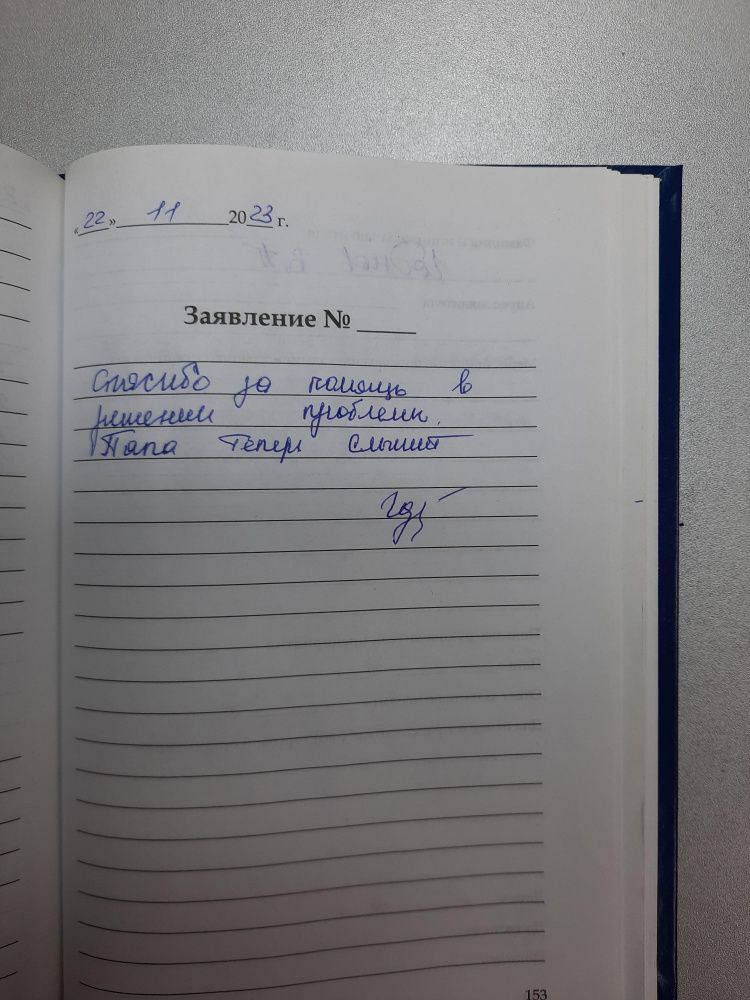 «22» 11 2023 г.
Заявление № ____
Спасибо за помощь в
решении проблемы.
Папа теперь слышит
153